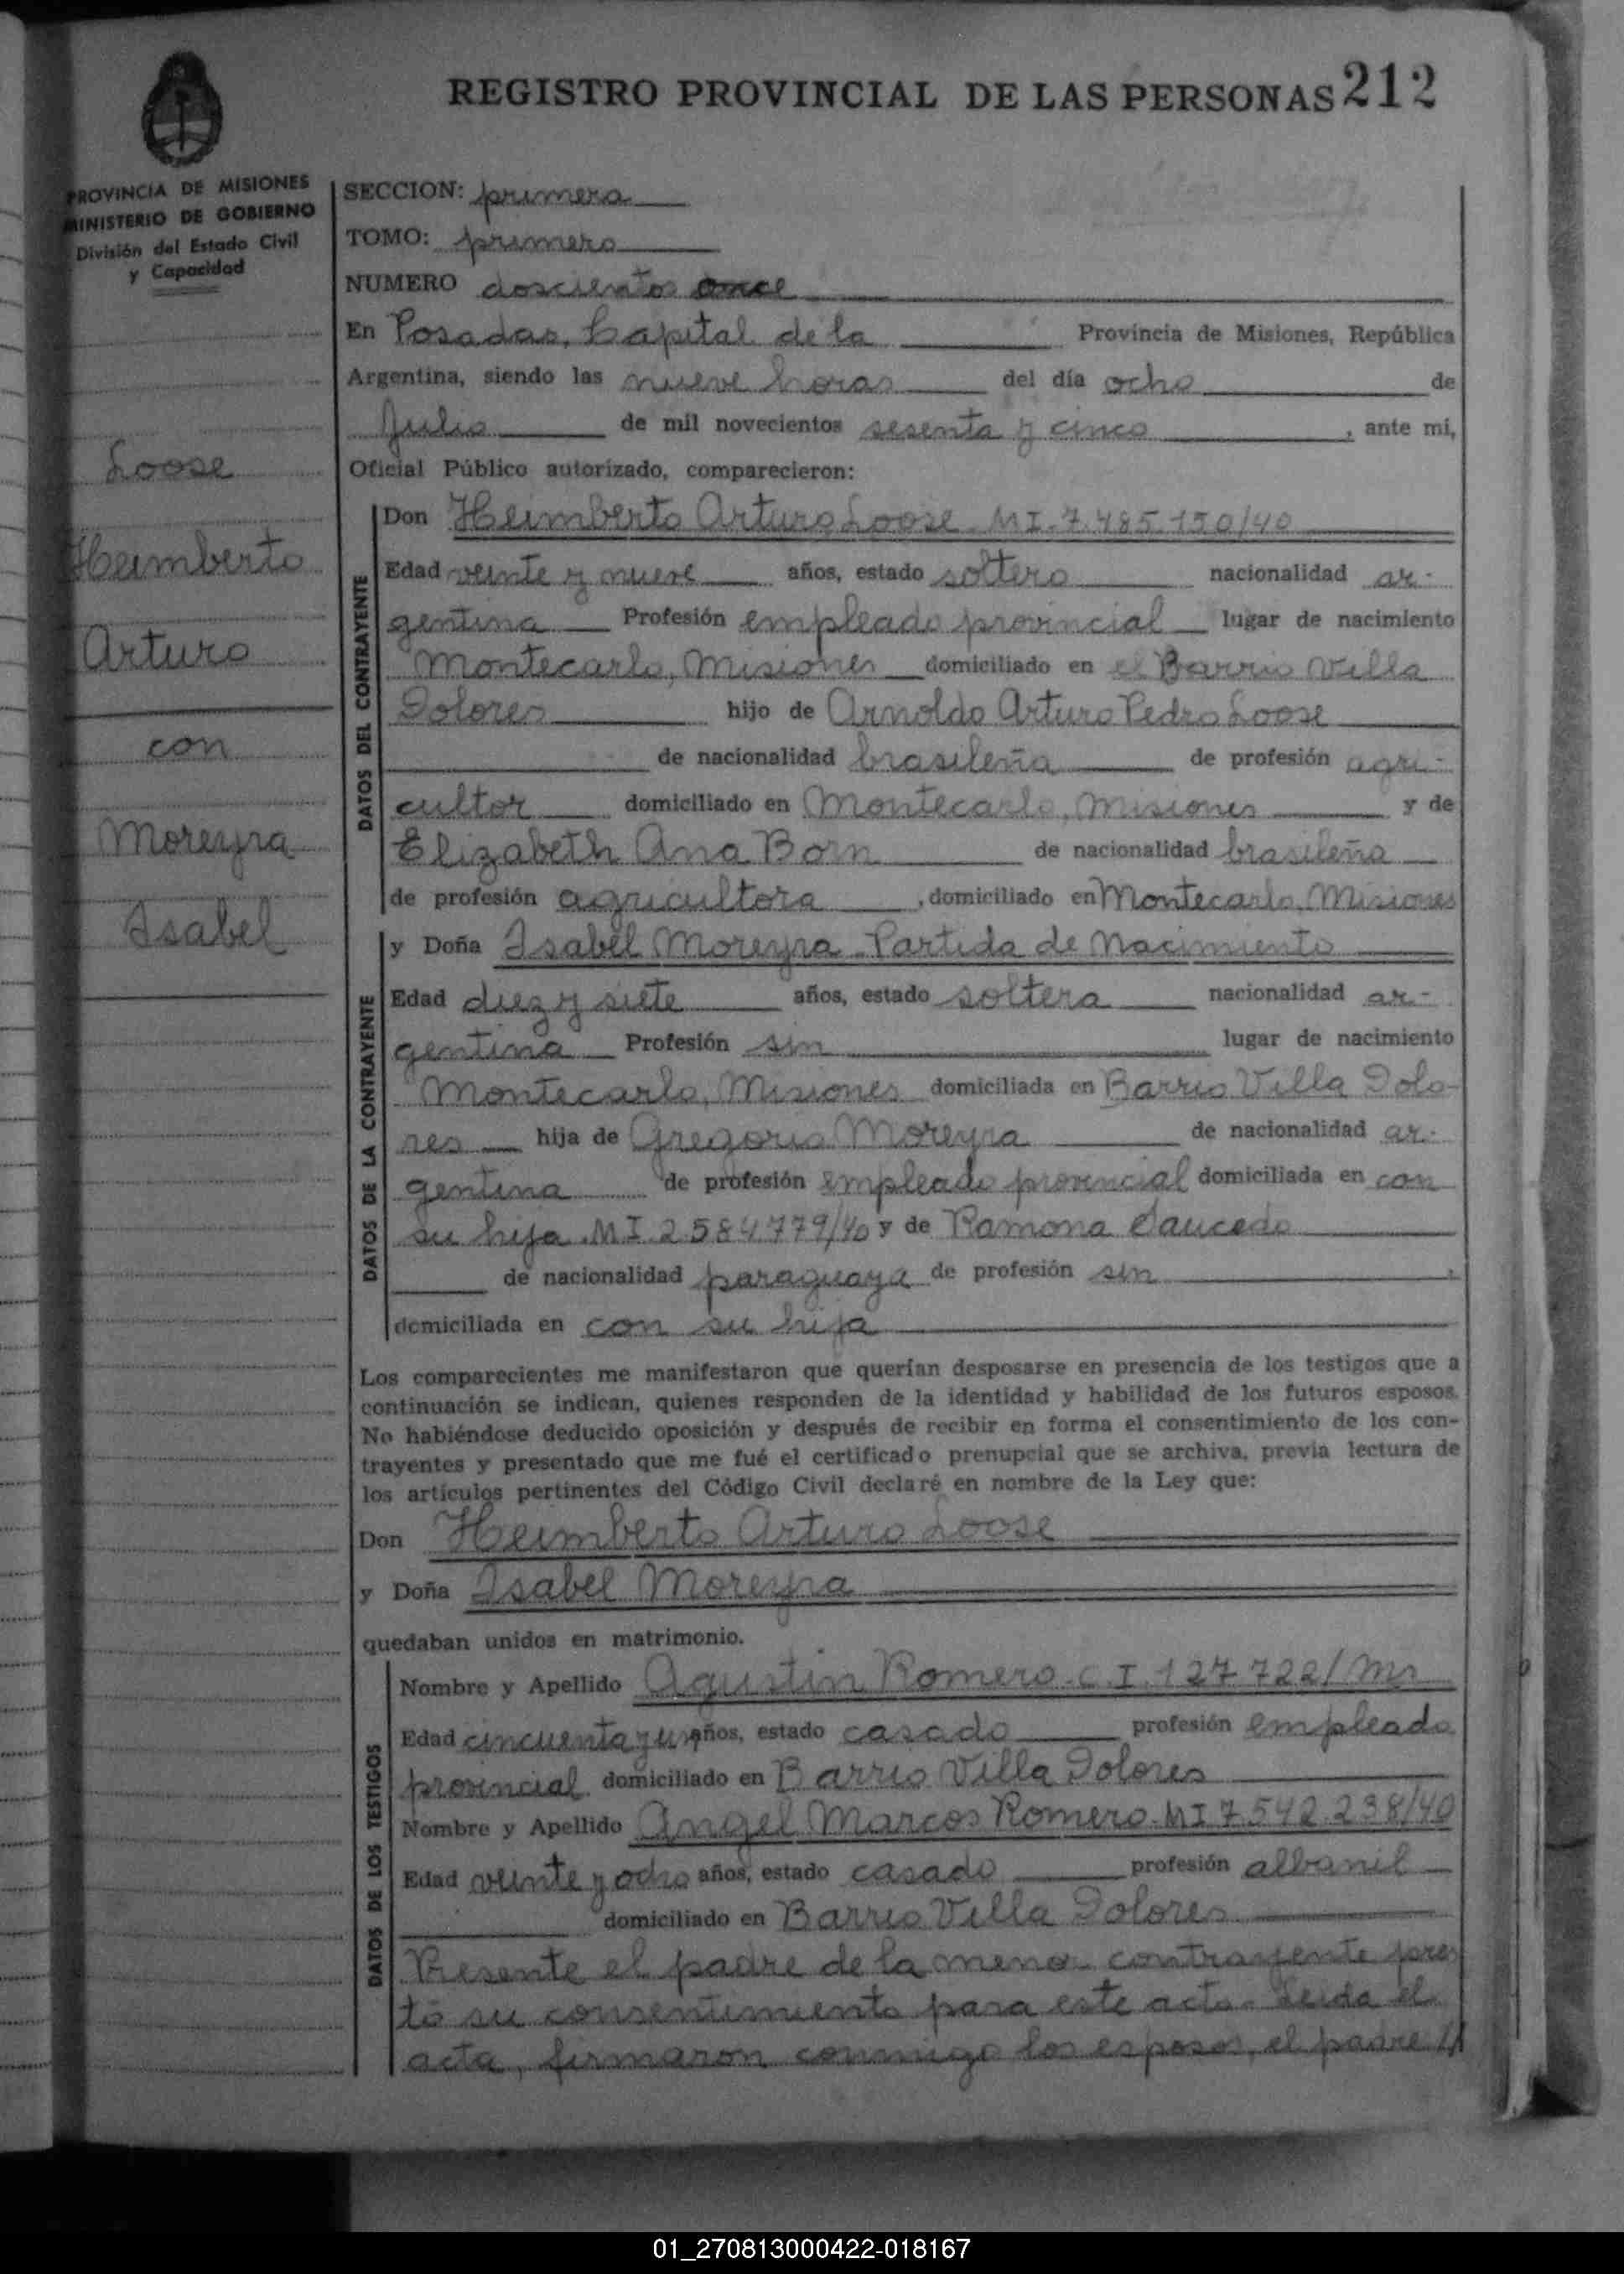 REGISTRO PROVINCIAL DE LAS PERSONAS 212
PROVINCIA DE MISIONES
MINISTERIO DE GOBIERNO
División del Estado Civil
y Capacidad
Loose
Heimberto
Arturo
con
Moreyra
Isabel
SECCION: primera
TOMO: primero
NUMERO doscientos once
En Posadas, Capital de la Provincia de Misiones, República
Argentina, siendo las nueve horas del día ocho de
Julio de mil novecientos sesenta y cinco, ante mi,
Oficial Público autorizado, comparecieron:
DATOS DEL CONTRAYENTE
Don Heimberto Arturo Loose - MI. 7.485.150/40
Edad veinte y nueve años, estado soltero nacionalidad ar-
gentina Profesión empleado provincial lugar de nacimiento
Montecarlo, Misiones domiciliado en el Barrio Villa
Dolores hijo de Arnoldo Arturo Pedro Loose
de nacionalidad brasileña de profesión agri-
cultor domiciliado en Montecarlo, Misiones y de
Elizabeth Ana Born de nacionalidad brasileña
de profesión agricultora, domiciliado en Montecarlo, Misiones
DATOS DE LA CONTRAYENTE
y Doña Isabel Moreyra - Partida de Nacimiento
Edad diez y siete años, estado soltera nacionalidad ar-
gentina Profesión sin lugar de nacimiento
Montecarlo, Misiones domiciliada en Barrio Villa Dolo-
res hija de Gregorio Moreyra de nacionalidad ar-
gentina de profesión empleado provincial domiciliada en con
su hija. MI. 2.584.779/40 y de Ramona Saucedo
de nacionalidad paraguaya de profesión sin,
domiciliada en con su hija
Los comparecientes me manifestaron que querían desposarse en presencia de los testigos que a
continuación se indican, quienes responden de la identidad y habilidad de los futuros esposos.
No habiéndose deducido oposición y después de recibir en forma el consentimiento de los con-
trayentes y presentado que me fué el certificado prenupcial que se archiva, previa lectura de
los artículos pertinentes del Código Civil declaré en nombre de la Ley que:
Don Heimberto Arturo Loose
y Doña Isabel Moreyra
quedaban unidos en matrimonio.
DATOS DE LOS TESTIGOS
Nombre y Apellido Agustin Romero - C.I. 127.722/Ms
Edad cincuenta y un años, estado casado profesión empleado
provincial domiciliado en Barrio Villa Dolores
Nombre y Apellido Angel Marcos Romero - MI 7.542.238/40
Edad veinte y ocho años, estado casado profesión albanil
domiciliado en Barrio Villa Dolores
Presente el padre de la menor contrayente pres
tó su consentimiento para este acto. Leida el
acta, firmaron conmigo los esposos, el padre
01_270813000422-018167